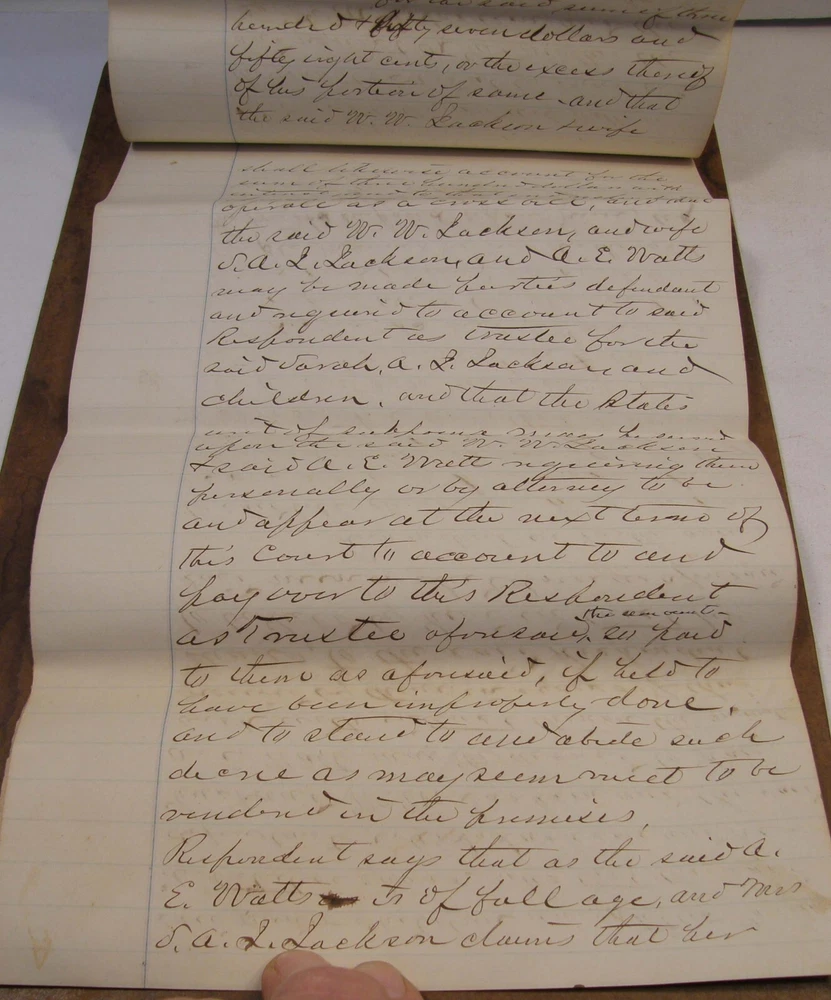 for said sum of three
hundred & fifty seven dollars and
fifty eight cents, or the excess thereof
of his portion of same and that
the said W. W. Jackson & wife
shall likewise account for the
sum of three hundred dollars with
interest and to
operate as a cross bill, and that
the said W. W. Jackson, and wife
S. A. J. Jackson, and A. E. Watts
may be made parties defendant
and required to account to said
Respondent as trustee for the
said Sarah, A. J. Jackson and
children, and that the States
writ of subpoena may be served
upon the said W. W. Jackson
& said A. E. Watt requiring them
personally or by attorney to be
and appear at the next term of
this Court to account to and
pay over to this Respondent
as Trustee aforesaid, the amount so paid
to them as aforesaid, if held to
have been improperly done,
and to stand to and abide such
decree as may seem meet to be
rendered in the premises,
Respondent says that as the said A.
E. Watts is of full age, and Mrs
S. A. J. Jackson claims that her